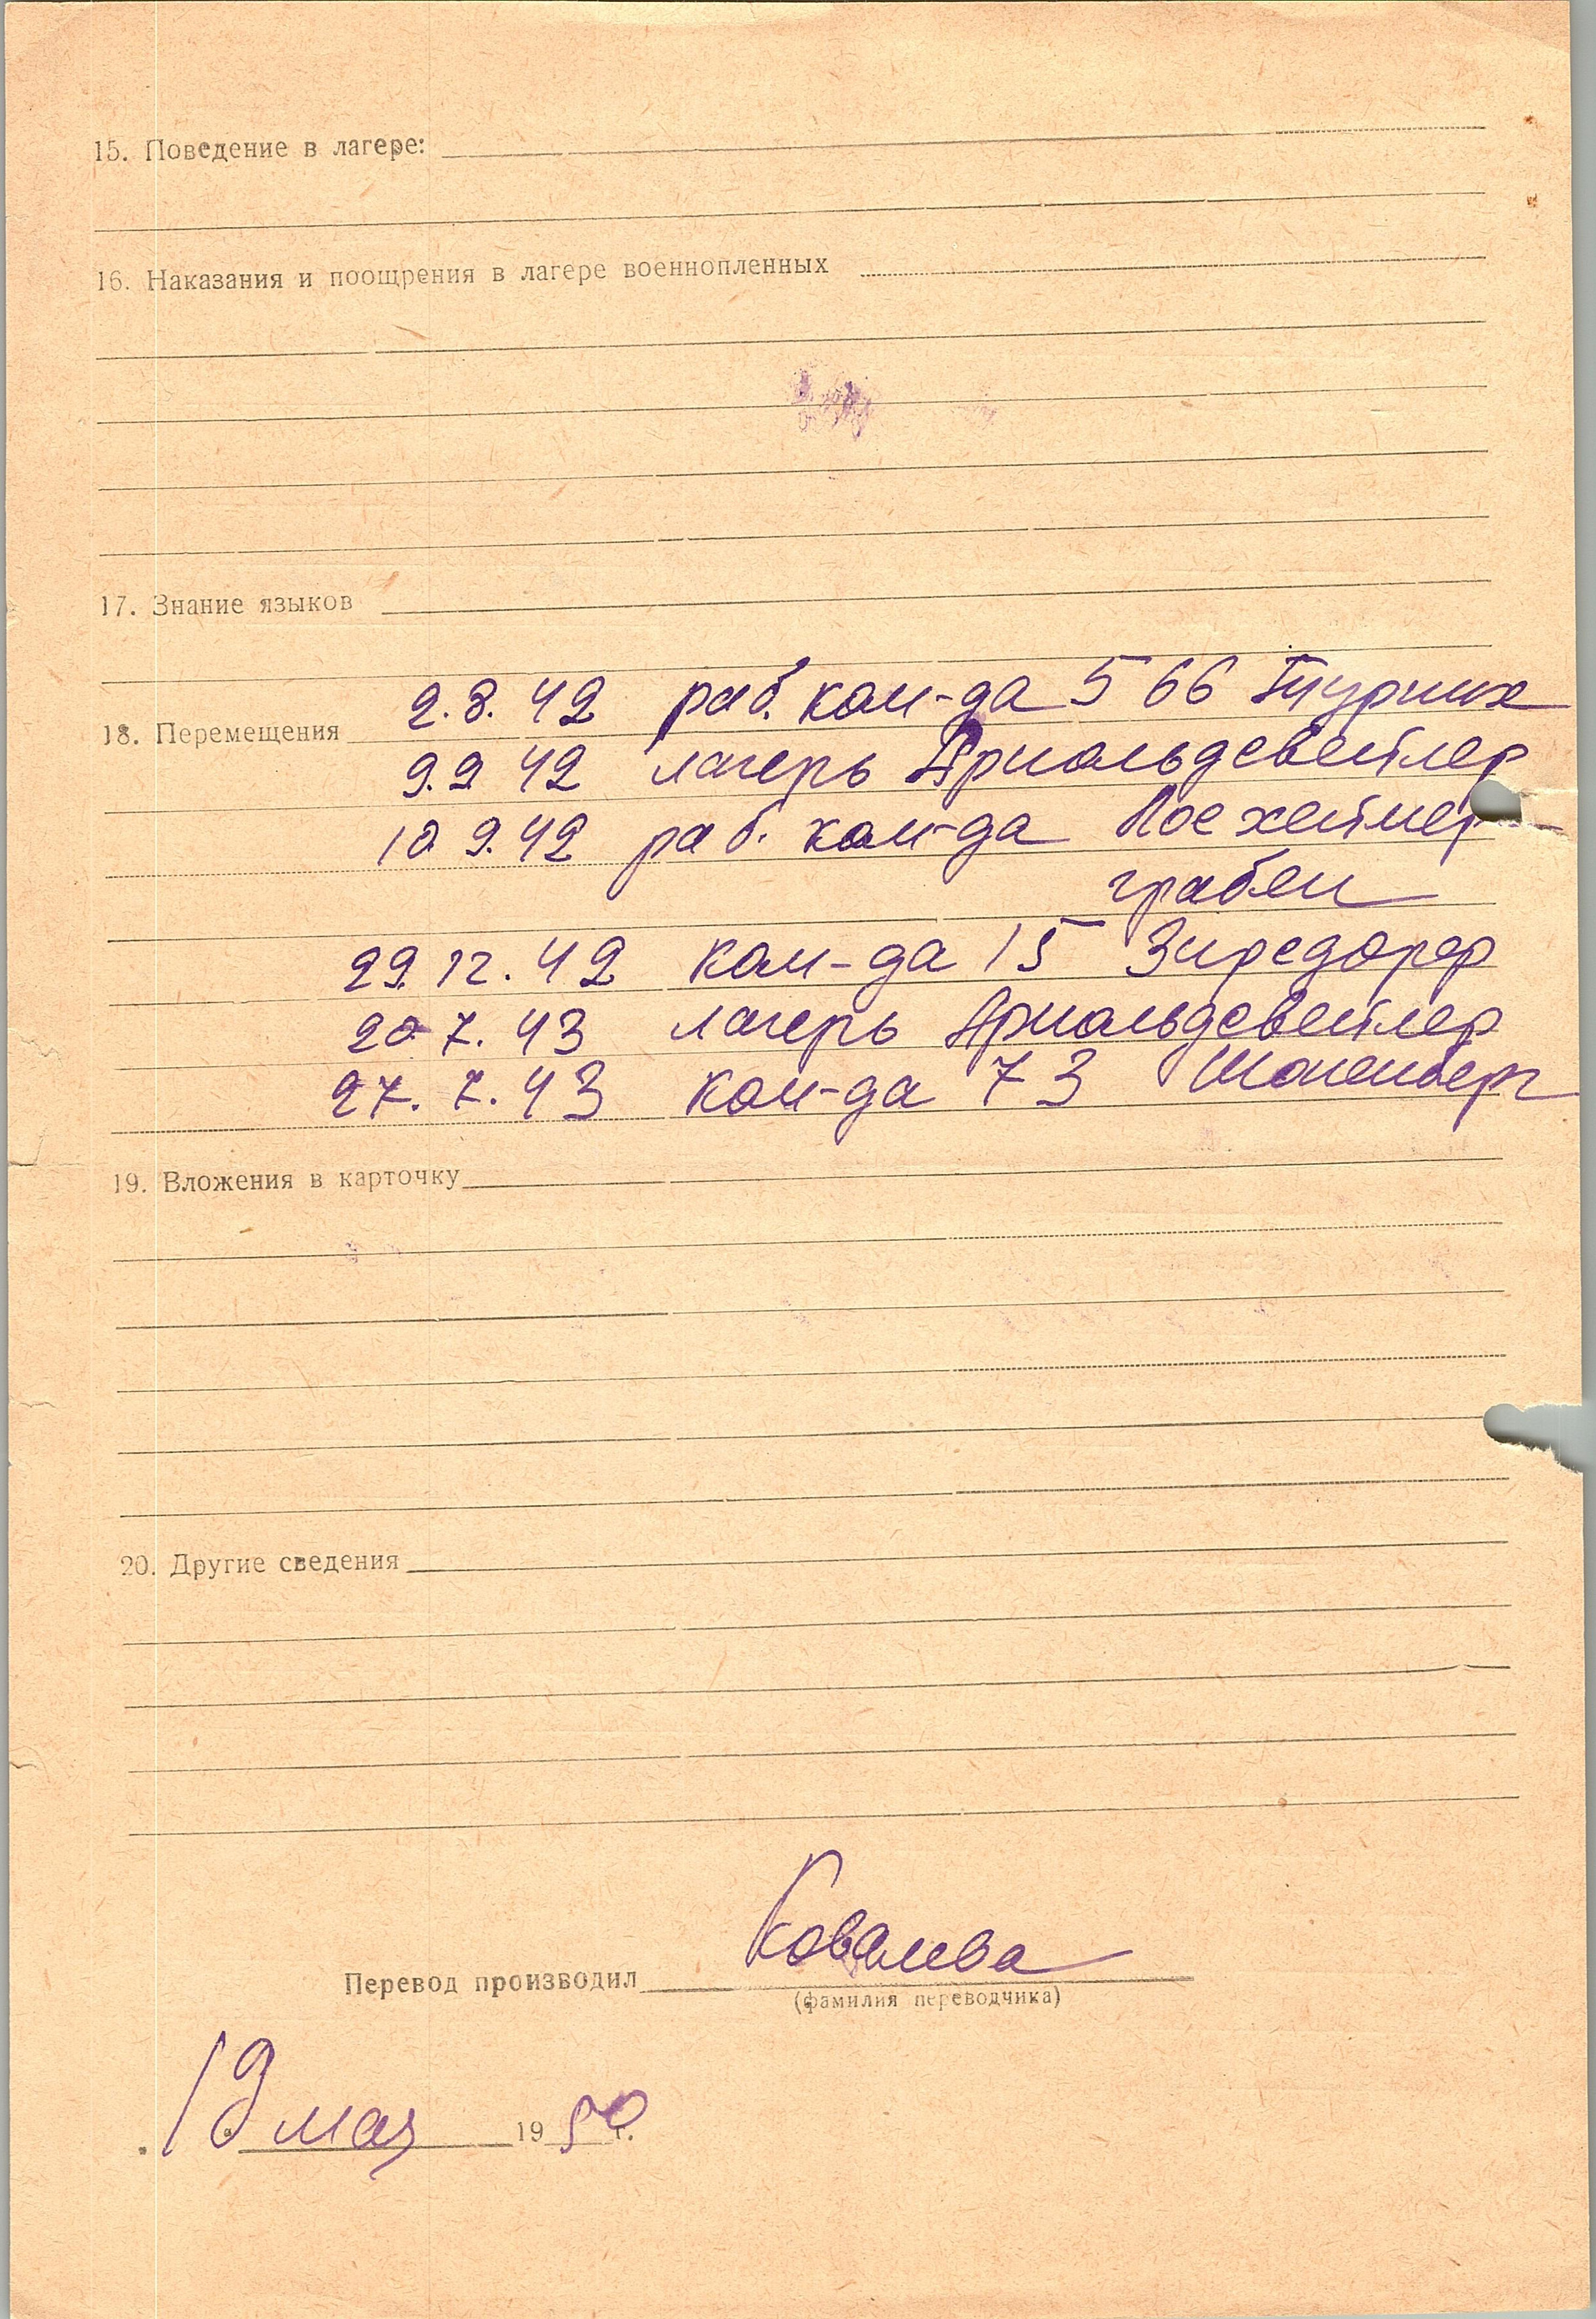 15. Поведение в лагере:
16. Наказания и поощрения в лагере военнопленных
17. Знание языков
2.8.42 раб. ком-да 566 Тюрних
18. Перемещения
9.9 42 лагерь Арнольдсвейлер
10 9.42 раб. ком-да
грабен
29.12.42 ком-да 15 Зирсдорф
20 7.43 лагерь Арнольдсвейлер
27.7.43 ком-да 73 Шоненберг
19. Вложения в карточку
20. Другие сведения
Перевод производил Ковалева
(фамилия переводчика)
19 мая 1950 г.